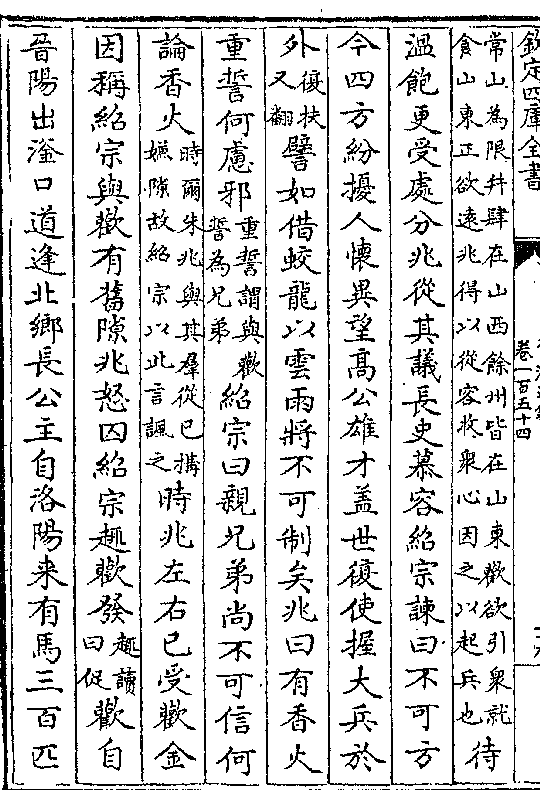 欽定四庫全書
卷一百五十四
常山為限井肆在山西餘州皆在山東歡欲引衆就
食山東正欲遠兆得以從容收衆心因之以起兵也待
溫飽更受處分兆從其議長史慕容紹宗諫曰不可方
今四方紛擾人懷異望髙公雄才盖世復使握大兵於
外復扶又翻譬如借蛟龍以雲雨將不可制矣兆曰有香火
重誓何慮邪重誓謂與歡誓為兄弟紹宗曰親兄弟尚不可信何
論香火時爾朱兆與其羣從已搆嫌隙故紹宗以此言諷之時兆左右已受歡金
因稱紹宗與歡有舊隙兆怒囚紹宗趣歡發趣讀曰促歡自
晉陽出滏口道逢北鄉長公主自洛陽来有馬三百匹